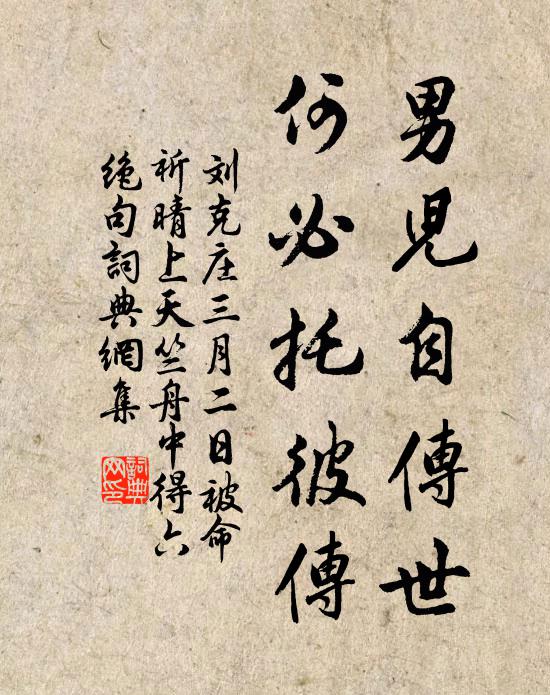 男児自傳世
何必托彼傳
刘克庄三月二日被命
祈晴上天竺舟中得六
绝句詞典網集
詞典
网印